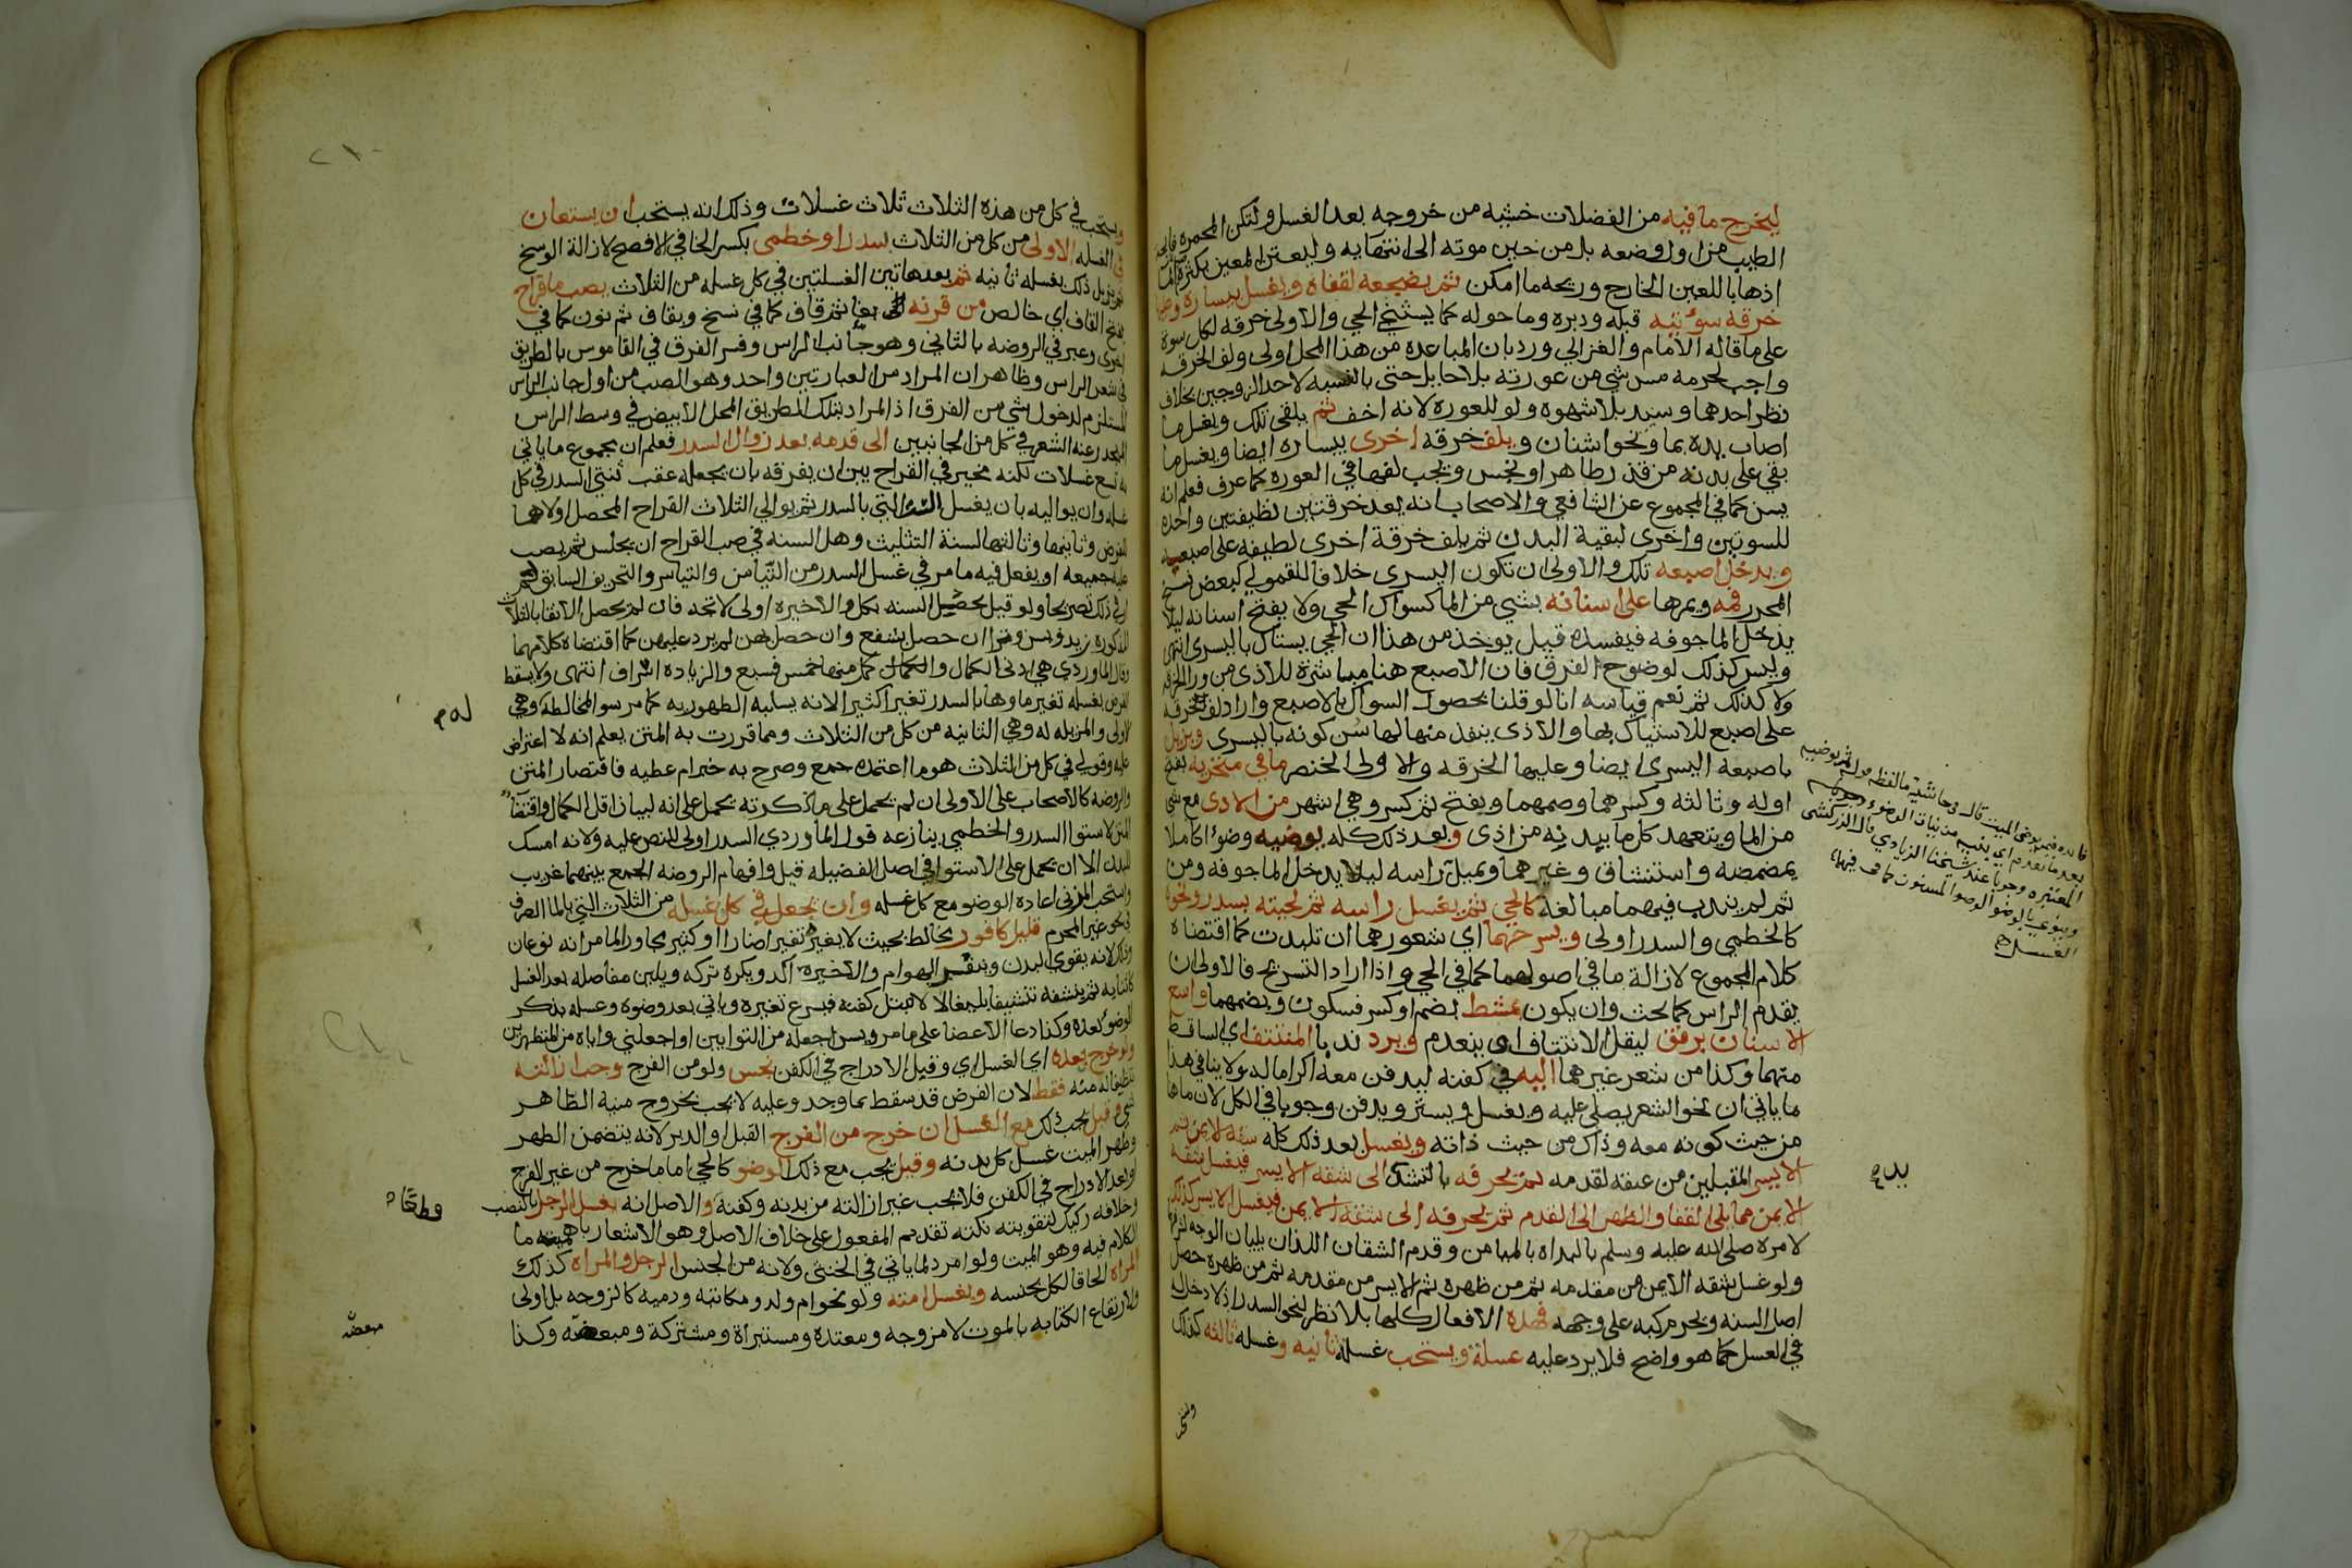 ليخرج ما فيه من الفضلات خشيه من خروجه بعد الغسل ولتكن المجمره
الطيب من اول وضعه بل من حين موته الى انتهايه وليعتن المعين بكثره
اذهابا للعين الخارج وريحه ما امكن ثم يضجعه لقفاه ويغسل بيساره
خرقه سوءتيه قبله ودبره وما حوله كما يستنجي الحي والاولى خرقه لكل سوة
على ما قاله الامام والغزالي ورد بان المباعده من هذا المحل اولى ولف الخرقه
واجب لحرمه مس شي من عورته بلا حايل حتى بالنسبه لاحد الزوجين بخلاف
نظر احدهما وسيد بلا شهوه ولو للعوره لانه اخف ثم يلقي تلك ويغسل ما
اصاب يده بما ونحو اشنان ويلف خرقه اخرى بيساره ايضا ويغسل ما
بقي على بدنه من قذر طاهر او نجس ويجب لفها في العوره كما عرف فعلم انه
يسن كما في المجموع عن الشافعي والاصحاب انه يعد خرقتين نظيفتين واحده
للسوتين واخرى لبقية البدن ثم يلف خرقة اخرى لطيفه على اصبعه
ويدخل اصبعه تلك والاولى ان تكون اليسرى خلافا للقمولي كبعض نسخ
المحرر فمه ويمرها على اسنانه بشي من الما كسواك الحي ولا يفتح اسنانه ليلا
يدخل الما جوفه فيفسده قيل يوخذ من هذا ان الحي يستاك باليسرى انتهى
وليس كذلك لوضوح الفرق فان الاصبع هنا مباشرة للاذى من ورا الخرقه
ولا كذلك ثم نعم قياسه انا لو قلنا بحصول السواك بالاصبع واراد لف خرقه
على اصبع للاستياك بها والاذى ينفذ منها لها سن كونه باليسرى ويزيل
باصبعه اليسرى ايضا وعليها الخرقه والاولى الخنصر ما في منخريه بفتح
اوله وثالثه وكسرهما وضمهما وبفتح ثم كسر وهي اشهر من الاذى مع شي
من الما ويتعهد كل ما ببدنه من اذى وبعد ذلك كله يوضيه وضوءا كاملا
بمضمضه واستنشاق وغيرهما ويميل راسه ليلا يدخل الما جوفه ومن
ثم لم يندب فيهما مبالغه كالحي ثم يغسل راسه ثم لحيته بسدر ونحوه
كالخطمي والسدر اولى ويسرحهما اي شعورهما ان تلبدت كما اقتضاه
كلام المجموع لازالة ما في اصولهما كما في الحي واذا اراد التسريح فالاولى ان
يقدم الراس كما بحث وان يكون بمشط بضم او كسر فسكون وبضمهما واسع
الاسنان برفق ليقل الانتتاف او ينعدم ويرد ندبا المنتتف اي الساقط
منهما وكذا من شعر غيرهما اليه في كفنه ليدفن معه اكراما له ولا ينافي هذا
ما ياتي ان نحو الشعر يصلى عليه ويغسل ويستر ويدفن وجوبا في الكل لان ما هنا
من حيث كونه معه وذاك من حيث ذاته ويغسل بعد ذلك كله شقه الايمن ثم
الايسر المقبلين من عنقه لقدمه ثم يحرفه بالتشديد الى شقه الايسر فيغسل شقه
الايمن مما يلي القفا والظهر الى القدم ثم يحرفه الى شقه الايمن فيغسل الايسر كذلك
لامره صلى الله عليه وسلم بالبداه بالميامن وقدم الشقان اللذان يليان الوجه
ولو غسل شقه الايمن من مقدمه ثم من ظهره ثم الايسر من مقدمه ثم من ظهره حصل
اصل السنه ويحرم كبه على وجهه فهذه الافعال كلها بلا نظر لنحو السدر اذ لا دخل له
في الغسل كما هو واضح فلا يرد عليه غسلة ويستحب غسلة ثانيه وغسله ثالثه كذلك
ويستحب
ثم يوضيه
بدع
٢١٠
ويستحب في كل من هذه الثلاث ثلاث غسلات وذلك انه يستحب ان يستعان
في الغسله الاولى من كل من الثلاث بسدر او خطمى بكسر الخا في الافصح لازالة الوسخ
ثم يزيل ذلك بغسله ثانيه ثم بعد هاتين الغسلتين في كل غسله من الثلاث يصب ما قراح
بفتح القاف اي خالص من قرنه بفا ثم قاف كما في نسخ وبقاف ثم نون كما في
اخرى وعبر في الروضه بالثاني وهو جانب الراس وفسر الفرق في القاموس بالطريق
في شعر الراس وظاهر ان المراد من العبارتين واحد وهو الصب من اول جانب الراس
المستلزم لدخول شي من الفرق اذ المراد بتلك الطريق المحل الابيض في وسط الراس
المنحدر عنه الشعر في كل من الجانبين الى قدمه بعد زوال السدر فعلم ان مجموع ما ياتي
به تسع غسلات لكنه مخير في القراح بين ان يفرقه بان يجعله عقب ثنتي السدر في كل
غسله وان يواليه بان يغسل الست التي بالسدر ثم يوالي الثلاث القراح المحصل اولاها
للفرض وثانيتها وثالثتها لسنة التثليث وهل السنه في صب القراح ان يجلس ثم يصب
عليه جميعه او يفعل فيه ما مر في غسل السدر من التيامن والتياسر والتحريف السابق لم
ار في ذلك تصريحا ولو قيل بحصول السنه بكل والاخيره اولى لاتجه فان لم يحصل الانقا بالثلاث
المذكوره زيد وسن وترا ان حصل بشفع وان حصل بهن لم يزد عليهن كما اقتضاه كلامهما
وقال الماوردي هي ادنى الكمال واكمل منها خمس فسبع والزياده اسراف انتهى ولا يسقط
الفرض بغسله تغير ماوها بالسدر تغيرا كثيرا لانه يسلبه الطهوريه كما مر سوا المخالطه وهي
الاولى والمزيله له وهي الثانيه من كل من الثلاث ومما قررت به المتن يعلم انه لا اعتراض
عليه وقولي في كل من الثلاث هو ما اعتمده جمع وصرح به خبر ام عطيه فاقتصار المتن
والروضه كالاصحاب على الاولى ان لم يحمل على ما ذكرته يحمل على انه لبيان اقل الكمال واقتضا
المتن لاستوا السدر والخطمي ينازعه قول الماوردي السدر اولى للنص عليه ولانه امسك
للبدن الا ان يحمل على الاستوا في اصل الفضيله قيل وافهام الروضه الجمع بينهما غريب
واستحب المزني اعاده الوضو مع كل غسله وان يجعل في كل غسله من الثلاث التي بالما الصرف
في نحو غير المحرم قليل كافور مخالط بحيث لا يغيره تغيرا ضارا او كثير مجاور لما مر انه نوعان
وذلك لانه يقوي البدن وينفر الهوام والاخيره اكد ويكره تركه ويلين مفاصله بعد الغسل
كاثنايه ثم ينشفه تنشيفا بليغا لئلا يبتل كفنه فيسرع تغيره وياتي بعد وضوه وغسله بذكر
الوضو بعده وكذا دعا الاعضا على ما مر ويسن اجعله من التوابين او اجعلني واياه من المتطهرين
ولو خرج بعده اي الغسل اي وقبل الادراج في الكفن نجس ولو من الفرج وجب ازالته
تنظيفا له منه فقط لان الفرض قد سقط بما وجد وعليه لا يجب بخروج منيه الطاهر
شي وقيل يجب ذلك مع الغسل ان خرج من الفرج القبل او الدبر لانه يتضمن الطهر
وطهر الميت غسل كل بدنه وقيل يجب مع ذلك الوضو كالحي اما ما خرج من غير الفرج
او بعد الادراج في الكفن فلا يجب غير ازالته من بدنه وكفنه والاصل انه يغسل الرجل بالنصب
وخلافه ركيك لتفويته نكته تقديم المفعول على خلاف الاصل وهو الاشعار باهميته ما
الكلام فيه وهو الميت ولو امرد لما ياتي في الخنثى ولانه من الجنس الرجل والمراه كذلك
المراه الحاقا لكل بجنسه ويغسل امته ولو نحو ام ولد ومكاتبه وذميه كالزوجه بل اولى
ولارتفاع الكتابه بالموت لا مزوجه ومعتده ومستبراة ومشتركة ومبعضه وكذا
مبعضه